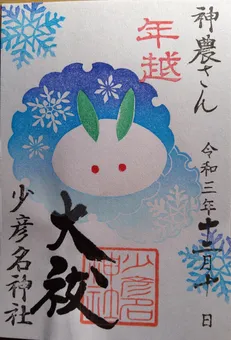 神農さん
令和三年十二月十日
年越
大祓
少彦名
神社
少彦名神社